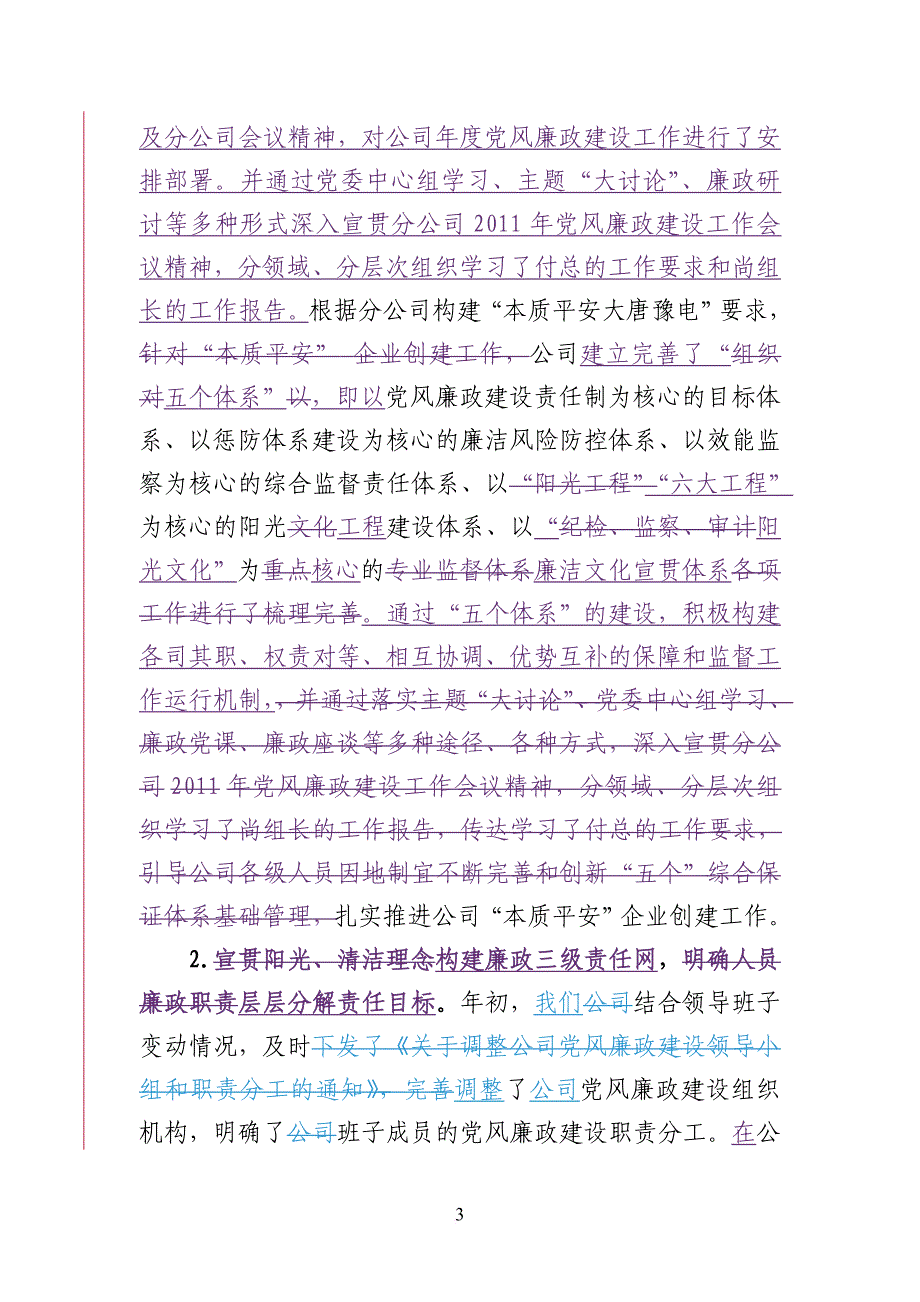 及分公司会议精神，对公司年度党风廉政建设工作进行了安
排部署。并通过党委中心组学习、主题“大讨论”、廉政研
讨等多种形式深入宣贯分公司2011年党风廉政建设工作会
议精神，分领域、分层次组织学习了付总的工作要求和尚组
长的工作报告。根据分公司构建“本质平安大唐豫电”要求，
针对“本质平安” 企业创建工作，公司建立完善了“组织
对五个体系”以，即以党风廉政建设责任制为核心的目标体
系、以惩防体系建设为核心的廉洁风险防控体系、以效能监
察为核心的综合监督责任体系、以“阳光工程”“六大工程”
为核心的阳光文化工程建设体系、以“纪检、监察、审计阳
光文化”为重点核心的专业监督体系廉洁文化宣贯体系各项
工作进行了梳理完善。通过“五个体系”的建设，积极构建
各司其职、权责对等、相互协调、优势互补的保障和监督工
作运行机制，，并通过落实主题“大讨论”、党委中心组学习、
廉政党课、廉政座谈等多种途径、各种方式，深入宣贯分公
司2011年党风廉政建设工作会议精神，分领域、分层次组
织学习了尚组长的工作报告，传达学习了付总的工作要求，
引导公司各级人员因地制宜不断完善和创新“五个”综合保
证体系基础管理，扎实推进公司“本质平安”企业创建工作。
2.宣贯阳光、清洁理念构建廉政三级责任网，明确人员
廉政职责层层分解责任目标。年初，我们公司结合领导班子
变动情况，及时下发了《关于调整公司党风廉政建设领导小
组和职责分工的通知》，完善调整了公司党风廉政建设组织
机构，明确了公司班子成员的党风廉政建设职责分工。在公
3